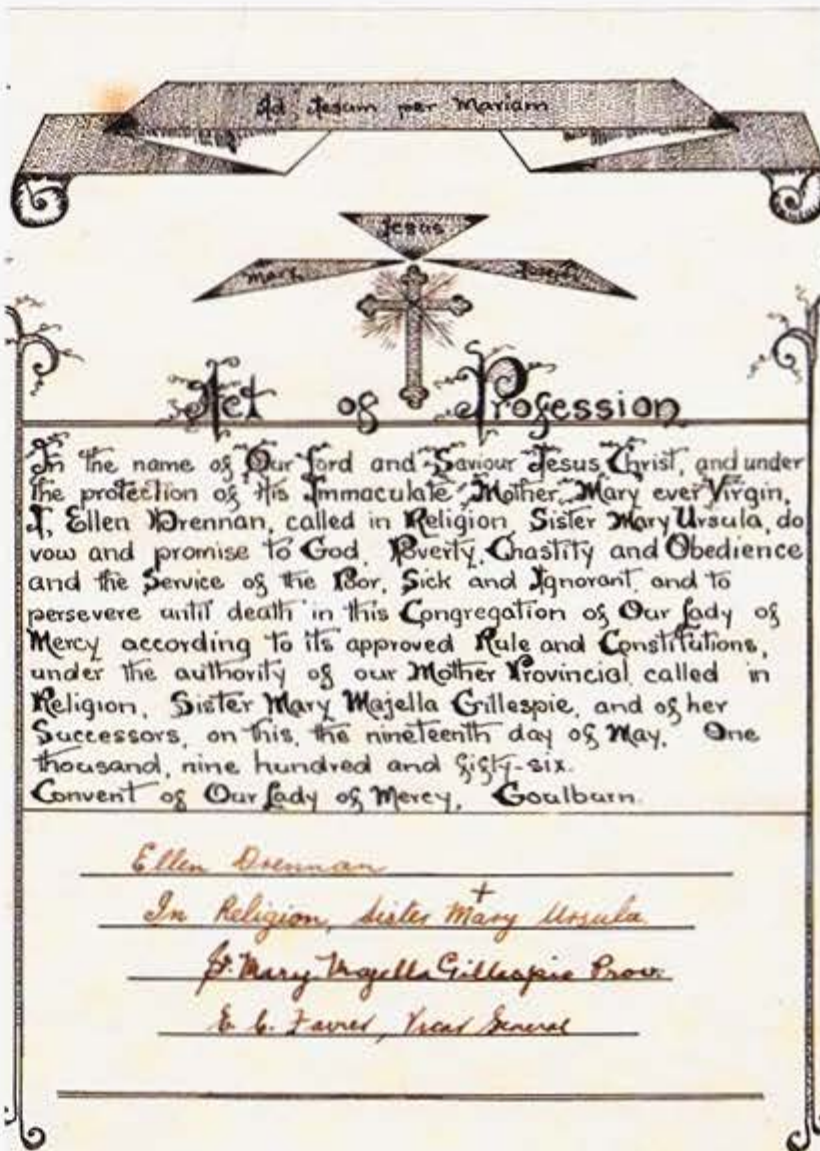 Ad Jesum per Mariam
Jesus
Mary Joseph
Act of Profession
In the name of Our Lord and Saviour Jesus Christ, and under
the protection of His Immaculate Mother, Mary ever Virgin,
I, Ellen Drennan, called in Religion Sister Mary Ursula, do
vow and promise to God, Poverty, Chastity and Obedience
and the Service of the Poor, Sick and Ignorant and to
persevere until death in this Congregation of Our Lady of
Mercy according to its approved Rule and Constitutions,
under the authority of our Mother Provincial called in
Religion, Sister Mary Majella Gillespie, and of her
Successors, on this, the nineteenth day of May, One
thousand, nine hundred and fifty-six.
Convent of Our Lady of Mercy, Goulburn.
Ellen Drennan
In Religion, Sister Mary Ursula
Mary Majella Gillespie Prov.
Vicar General